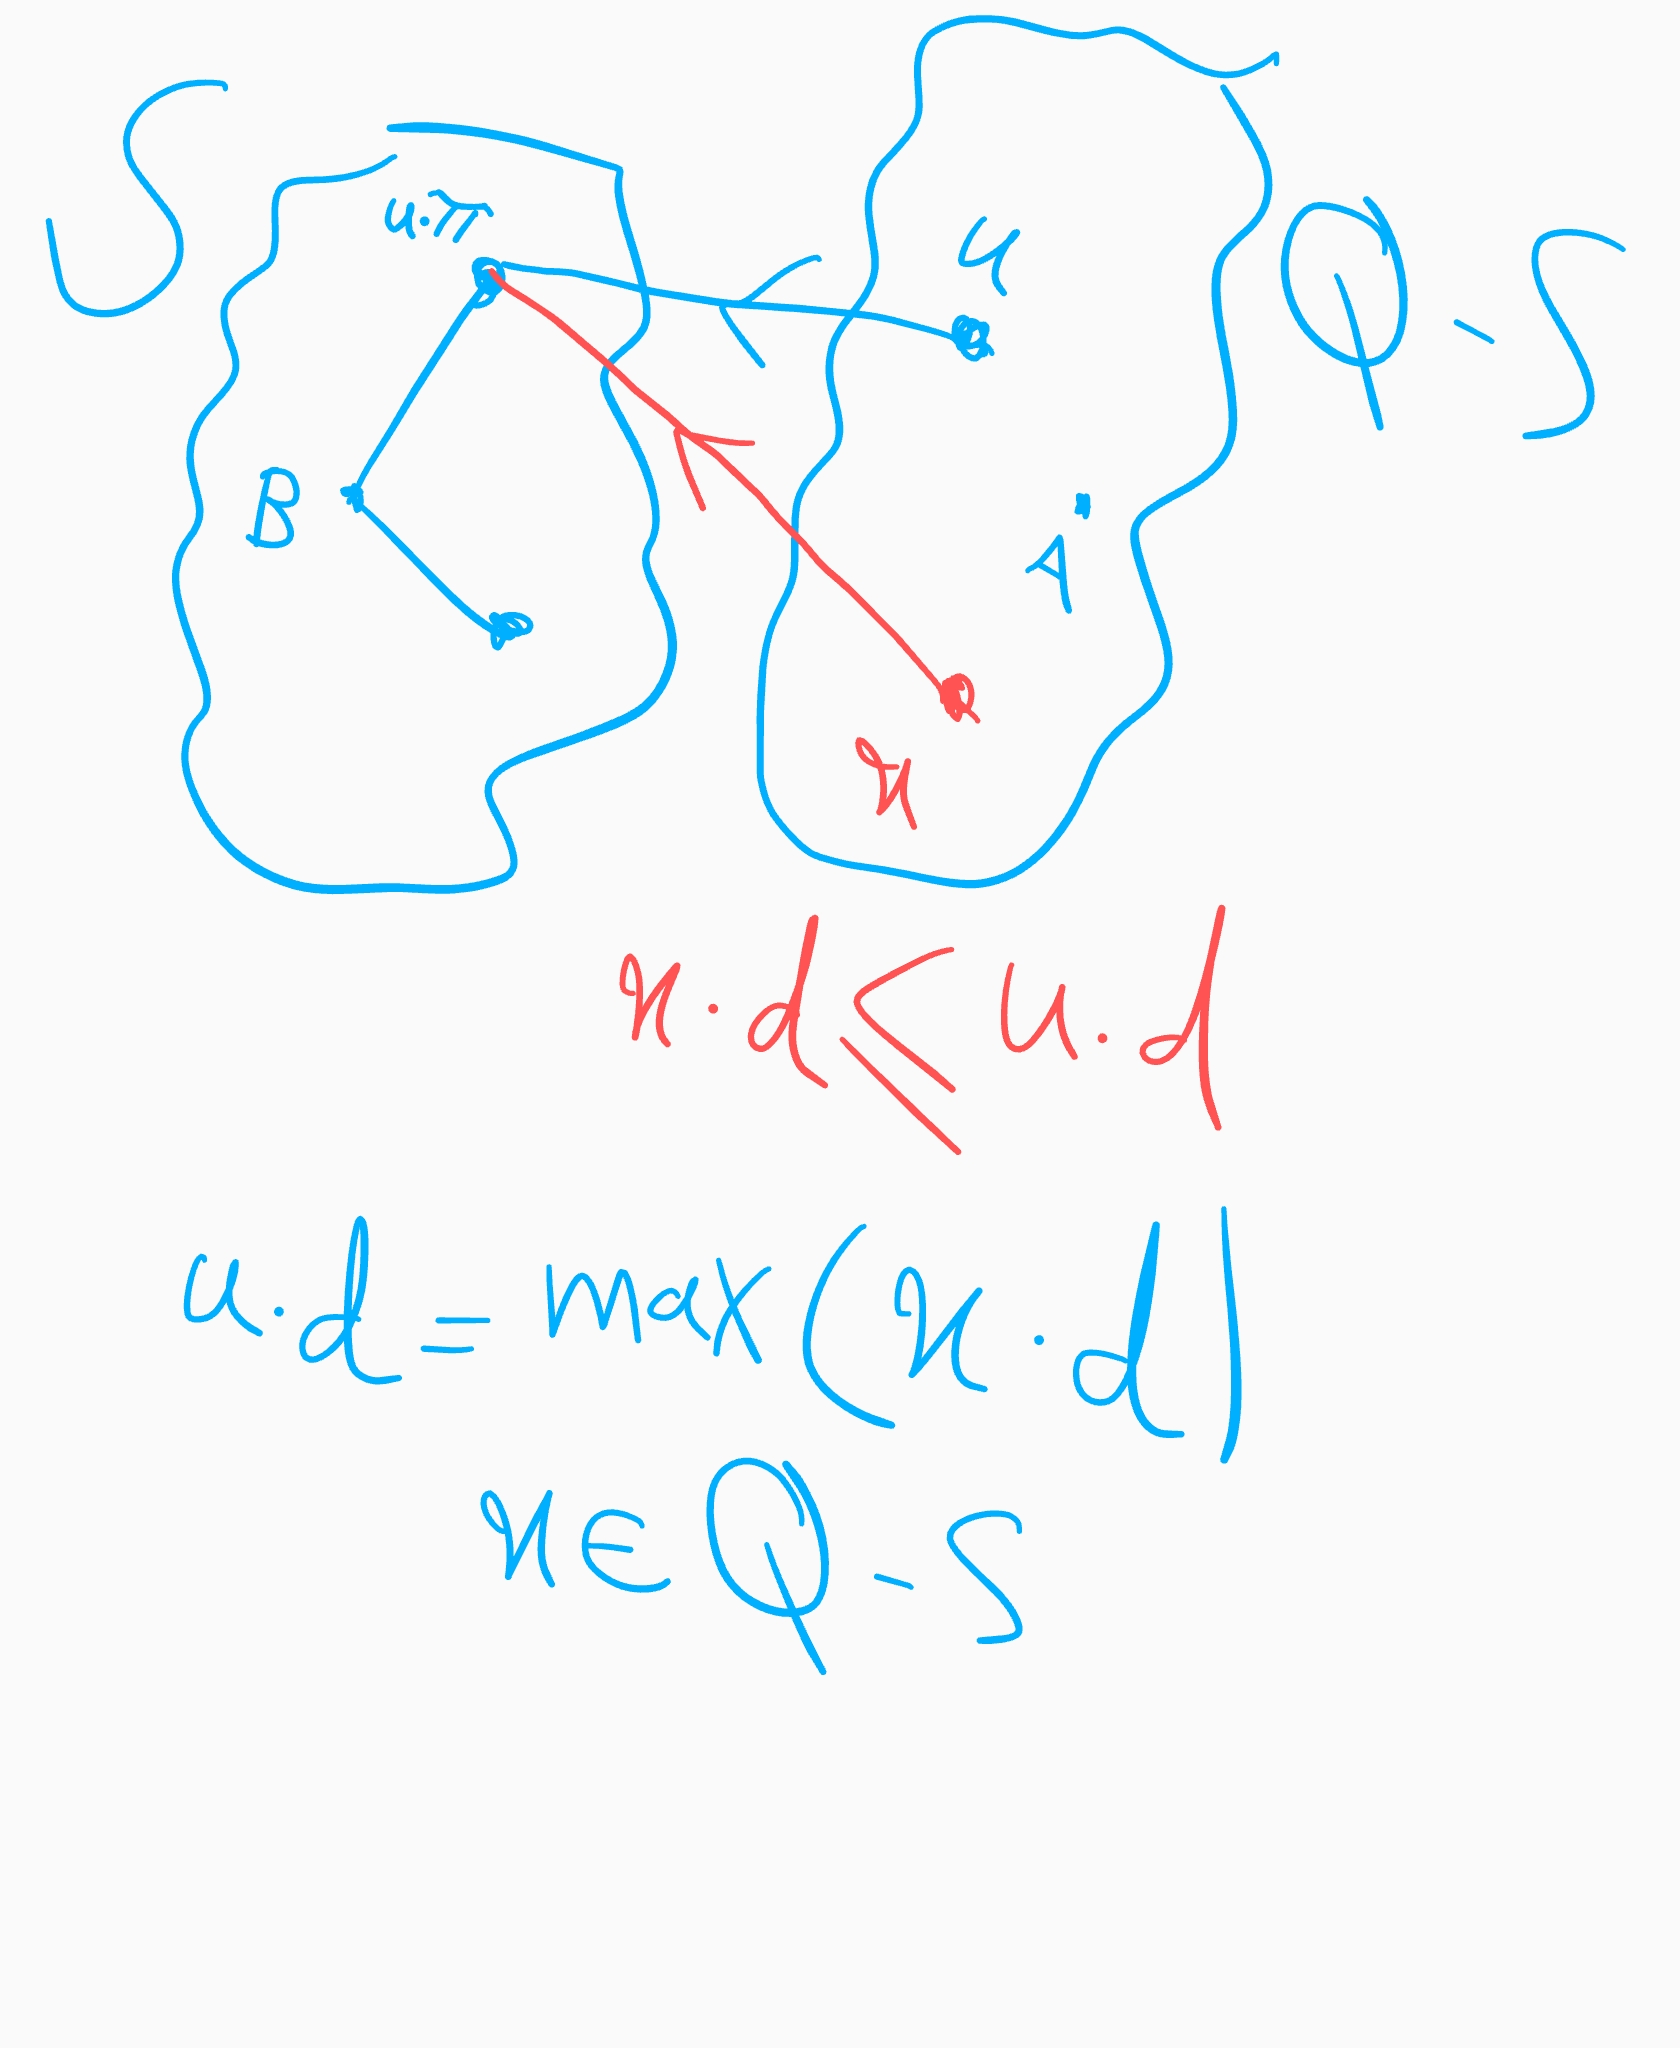 S
u.π
u
Q - S
B
A
x
x.d ≤ u.d
u.d = max(x.d)
x ∈ Q - S